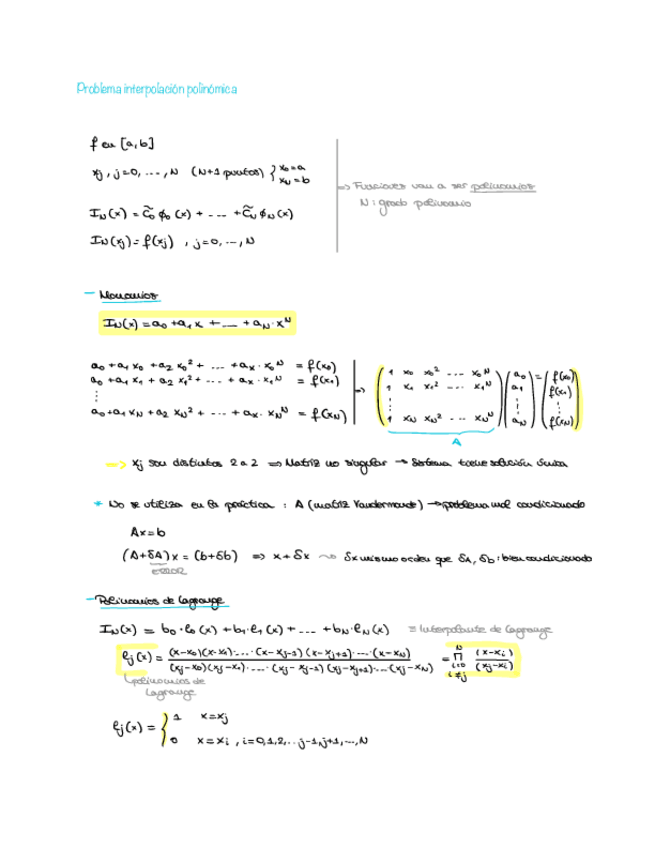 Problema interpolación polinómica
f en [a,b]
xj, j=0, ..., N (N+1 puntos) { x0=a
xN=b
=> Funciones van a ser polinomios
N: grado polinomio
IN(x) = c̃0 ϕ0(x) + ... + c̃N ϕN(x)
IN(xj) = f(xj), j=0, ..., N
- Monomios
IN(x) = a0 + a1 x + ... + aN · x^N
a0 + a1 x0 + a2 x0² + ... + ax · x0^N = f(x0)
a0 + a1 x1 + a2 x1² + ... + ax · x1^N = f(x1)
⋮
a0 + a1 xN + a2 xN² + ... + ax · xN^N = f(xN)
=> ( 1 x0 x0² ... x0^N ) ( a0 ) = ( f(x0) )
1 x1 x1² ... x1^N a1 f(x1)
⋮ ⋮ ⋮
1 xN xN² ... xN^N aN f(xN)
A
=> xj son distintos 2 a 2 => Matriz no singular → Sistema tiene solución única
* No se utiliza en la práctica : A (matriz Vandermonde) → problema mal condicionado
Ax=b
(A+δA)x = (b+δb) => x+δx ~> δx mismo orden que δA, δb : bien condicionado
ERROR
- Polinomios de Lagrange
IN(x) = b0 · ℓ0(x) + b1 · ℓ1(x) + ... + bN · ℓN(x) ≡ Interpolante de Lagrange
ℓj(x) = (x-x0)(x-x1)· ... ·(x-xj-1)(x-xj+1)· ... ·(x-xN) / (xj-x0)(xj-x1)· ... ·(xj-xj-1)(xj-xj+1)· ... (xj-xN) = ∏ i=0 i≠j N (x-xi) / (xj-xi)
polinomios de
Lagrange
ℓj(x) = { 1 x=xj
0 x=xi , i=0,1,2,...j-1,j+1,...,N